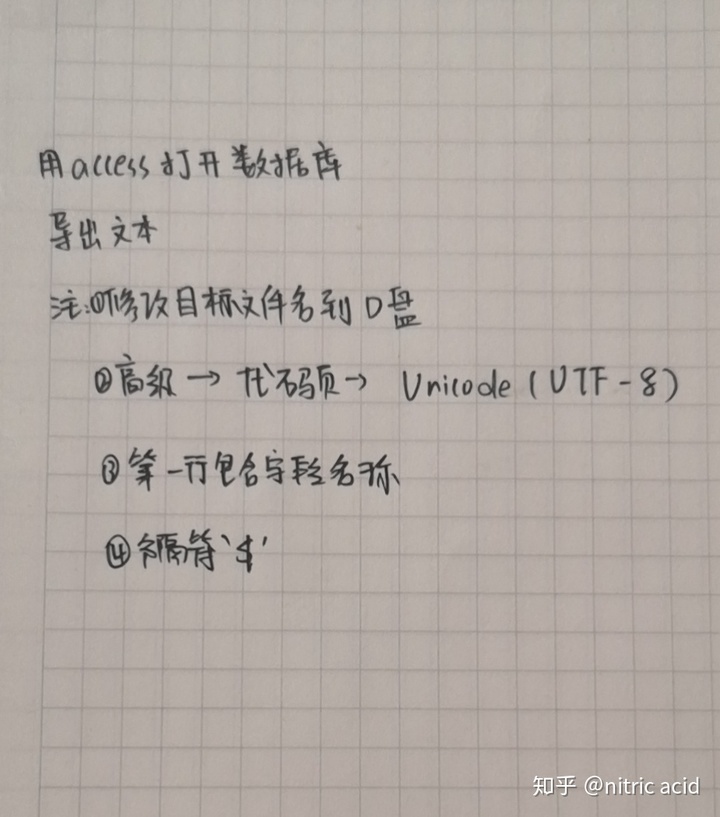 用access打开数据库
导出文本
注:①修改目标文件名到D盘
②高级→代码页→ Unicode(UTF-8)
③第一行包含字段名称
④分隔符'$'
知乎 @nitric acid